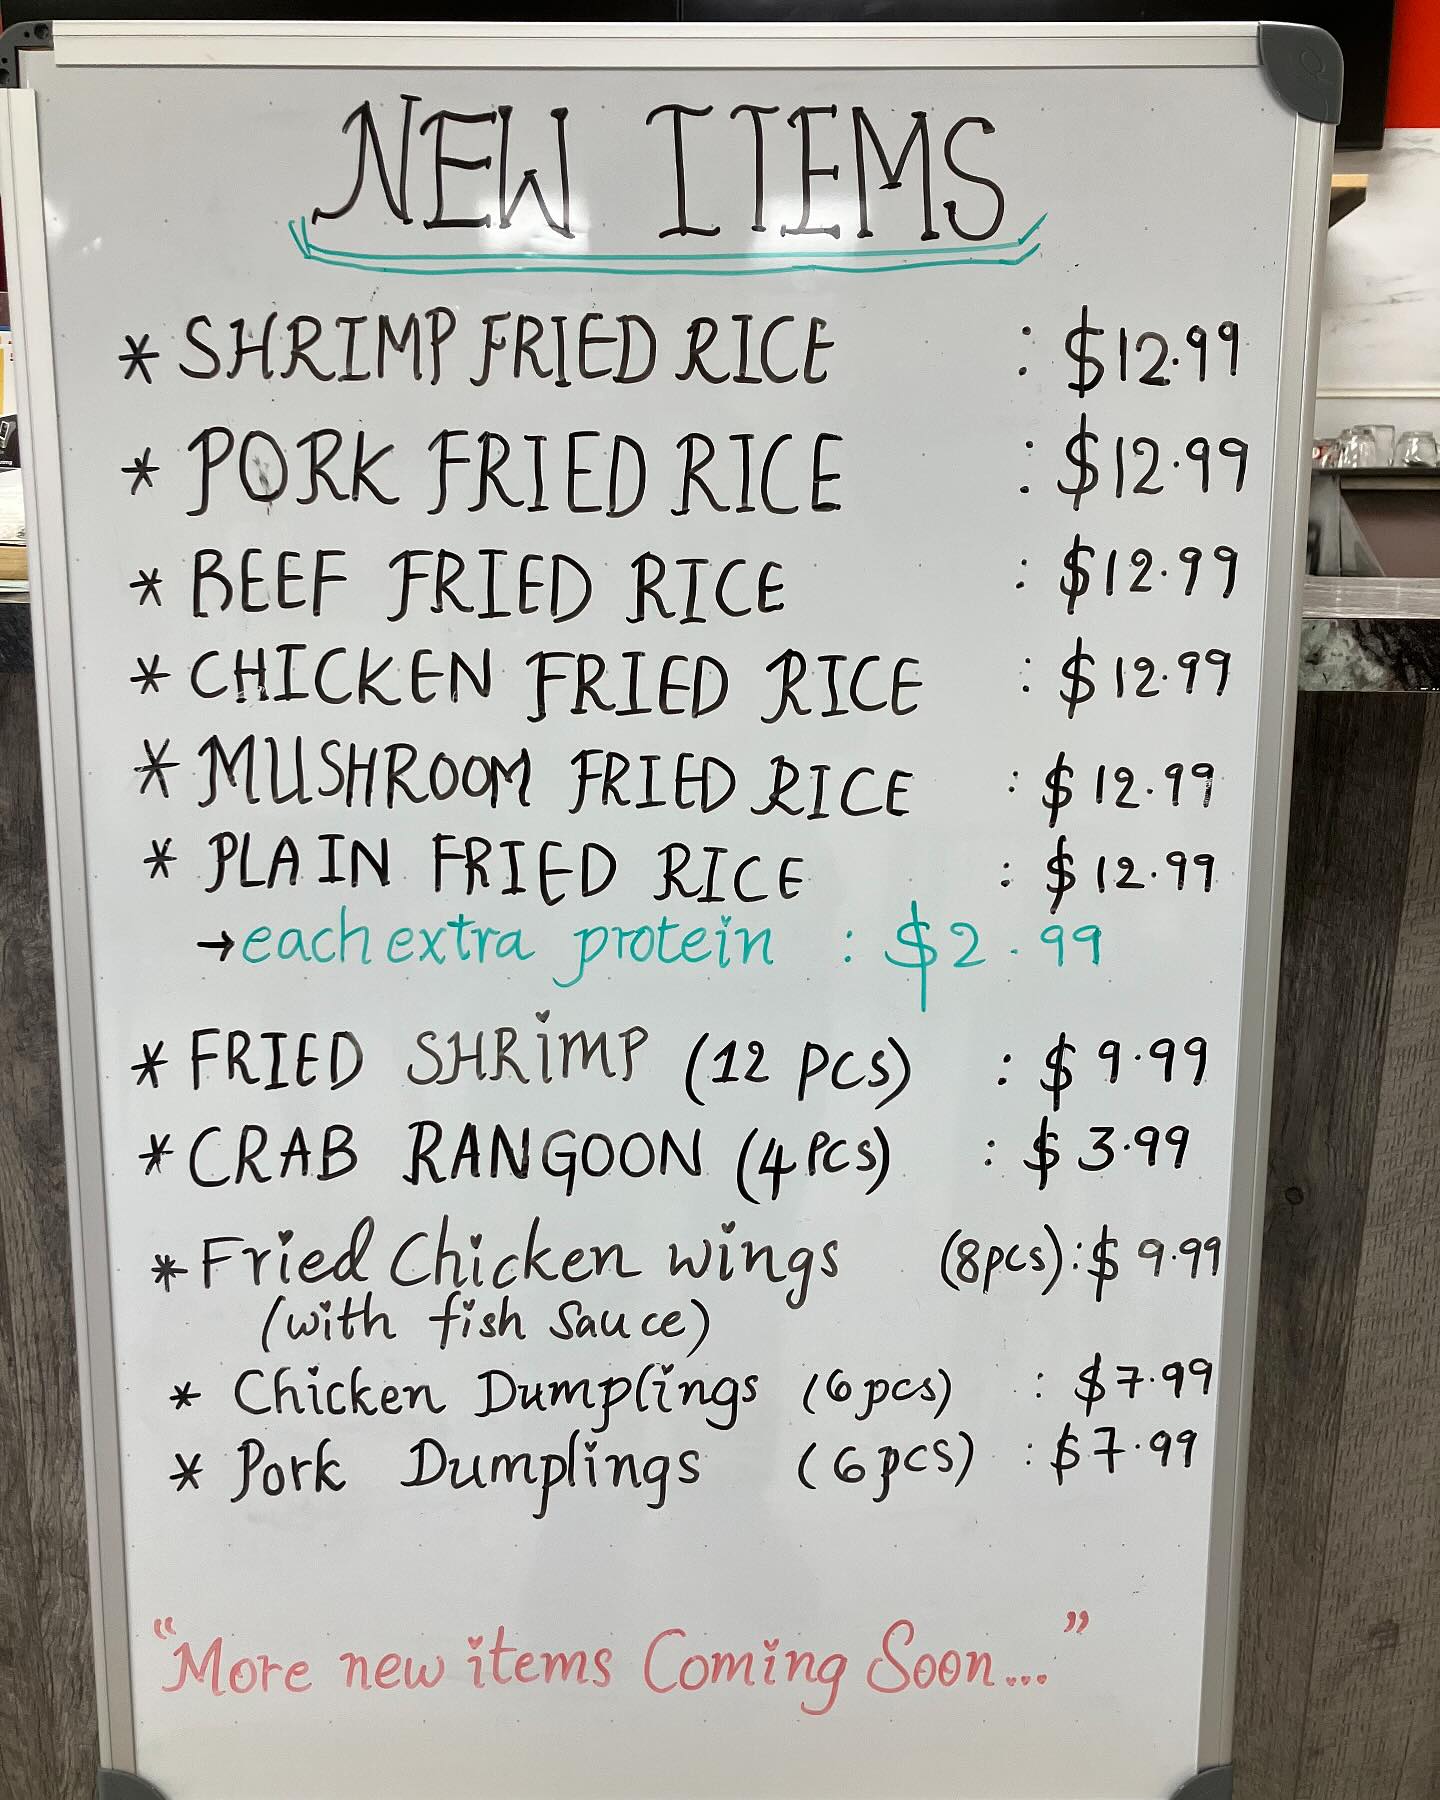 NEW ITEMS
* SHRIMP FRIED RICE : $12.99
* PORK FRIED RICE : $12.99
* BEEF FRIED RICE : $12.99
* CHICKEN FRIED RICE : $12.99
* MUSHROOM FRIED RICE : $12.99
* PLAIN FRIED RICE : $12.99
→ each extra protein : $2.99
* FRIED SHRiMP (12 PCS) : $9.99
* CRAB RANGOON (4 PCS) : $3.99
* Fried Chicken wings (8pcs) : $9.99
(with fish Sauce)
* Chicken Dumplings (6pcs) : $7.99
* Pork Dumplings (6pcs) : $7.99
"More new items Coming Soon..."